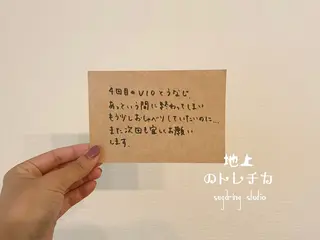 4回目のVIOとうなじ
あっという間に終わってしまい
もう少しおしゃべりしていたいのに...
また次回も宜しくお願い
します。
地上
のトレチカ
sugaring studio